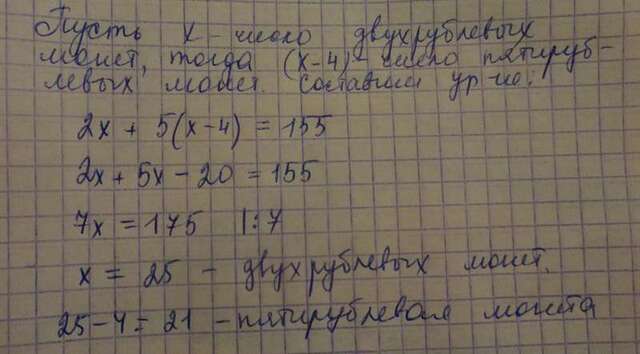 Пусть x - число двухрублевых
монет, тогда (x-4) - число пятируб-
левых монет. Составим ур-ие:
2x + 5(x-4) = 155
2x + 5x - 20 = 155
7x = 175 |:7
x = 25 - двухрублевых монет.
25-4 = 21 - пятирублевая монета